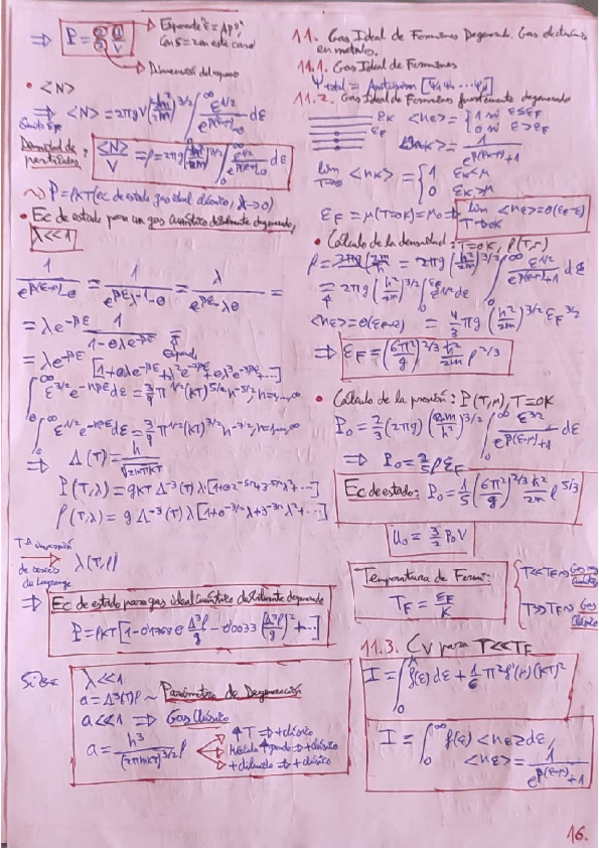 ⇒ P = (2/3) (U/V)
→ Exponente "ε = Ap^s",
con s = 2 en este caso
→ Dimensión del espacio
• <N>
⇒ <N> = 2πgV (2m/h²)^{3/2} ∫_0^∞ ε^{1/2}/(e^{β(ε-μ)} - θ) dε
Densidad de
partículas: <N>/V = ρ = 2πg (2m/h²)^{3/2} ∫_0^∞ ε^{1/2}/(e^{β(ε-μ)} - θ) dε
P = ρKT (ec de estado gas ideal clásico, λ→0)
• Ec de estado para un gas cuántico débilmente degenerado,
λ<<1
1/(e^{β(ε-μ)} - θ) = 1/(e^{βε} λ^{-1} - θ) = λ/(e^{βε} - λθ) =
= λe^{-βε} 1/(1 - θλe^{-βε}) =
= λe^{-βε} [1 + θλe^{-βε} + λ²e^{-2βε} + θλ³e^{-3βε} + ...]
∫_0^∞ ε^{3/2} e^{-nβε} dε = 3/4 π^{1/2} (KT)^{5/2} n^{-5/2}, n = 1, ..., ∞
∫_0^∞ ε^{1/2} e^{-nβε} dε = 3/4 π^{1/2} (KT)^{3/2} n^{-3/2}, n = 1, ..., ∞
⇒ Λ(T) = h/√(2πmKT)
P(T,λ) = gKT Λ^{-3}(T) λ [1 + θ2^{-5/2}λ + 3^{-5/2}λ² + ...]
ρ(T,λ) = g Λ^{-3}(T) λ [1 + θ2^{-3/2}λ + 3^{-3/2}λ² + ...]
Tª inversión
de series
de Lagrange
λ(T,ρ)
⇒ Ec de estado para gas ideal cuántico débilmente degenerado
P = ρKT [1 - 0'1768 θ Λ³ρ/g - 0'0033 (Λ³ρ/g)² + ...]
λ<<1
a = Λ³(T)ρ ~ Parámetro de Degeneración
a<<1 ⇒ Gas Clásico
a = h³/(2πmKT)^{3/2} ρ
↑T ⇒ + clásico
Molécula ↑ pesada ⇒ + clásico
+ diluido ⇒ + clásico
11. Gas Ideal de Fermiones Degenerado. Gas de electrones
en metales.
11.1. Gas Ideal de Fermiones
Ψ_total = Antisim [Ψ₁Ψ₂ ... Ψ_N]
11.2. Gas Ideal de Fermiones fuertemente degenerado
ε_K <n_ε> = {1 si ε ≤ ε_F
0 si ε > ε_F
ε_F
<n_K> = 1/(e^{β(ε_K-μ)} + 1)
lim T→0 <n_K> = {1 ε_K < μ
0 ε_K > μ
ε_F = μ(T=0K) = μ₀ ⇒ lim T→0K <n_ε> = θ(ε_F - ε)
• Cálculo de la densidad: T = 0K, ρ(T,μ)
= 2πg (2m/h²)^{3/2} ∫_0^∞ ε^{1/2}/(e^{β(ε-μ)} + 1) dε
<n_ε> = θ(ε_F - ε) = 4/3 πg (2m/h²)^{3/2} ε_F^{3/2}
⇒ ε_F = (6π²/g)^{2/3} ħ²/2m ρ^{2/3}
• Cálculo de la presión: P(T,μ), T = 0K
P₀ = 2/3 (2πg) (2m/h²)^{3/2} ∫_0^∞ ε^{3/2}/(e^{β(ε-μ)} + 1) dε
⇒ P₀ = 2/5 ρ ε_F
Ec de estado: P₀ = 1/5 (6π²/g)^{2/3} ħ²/m ρ^{5/3}
U₀ = 3/2 P₀V
Temperatura de Fermi:
T_F = ε_F/K
T<<T_F ~ Gas Cuántico
T>>T_F ~ Gas Clásico
11.3. Cv para T<<T_F
I = ∫_0^μ f(ε) dε + 1/6 π² f'(μ) (KT)²
I = ∫_0^∞ f(ε) <n_ε> dε,
<n_ε> = 1/(e^{β(ε-μ)} + 1)
16.